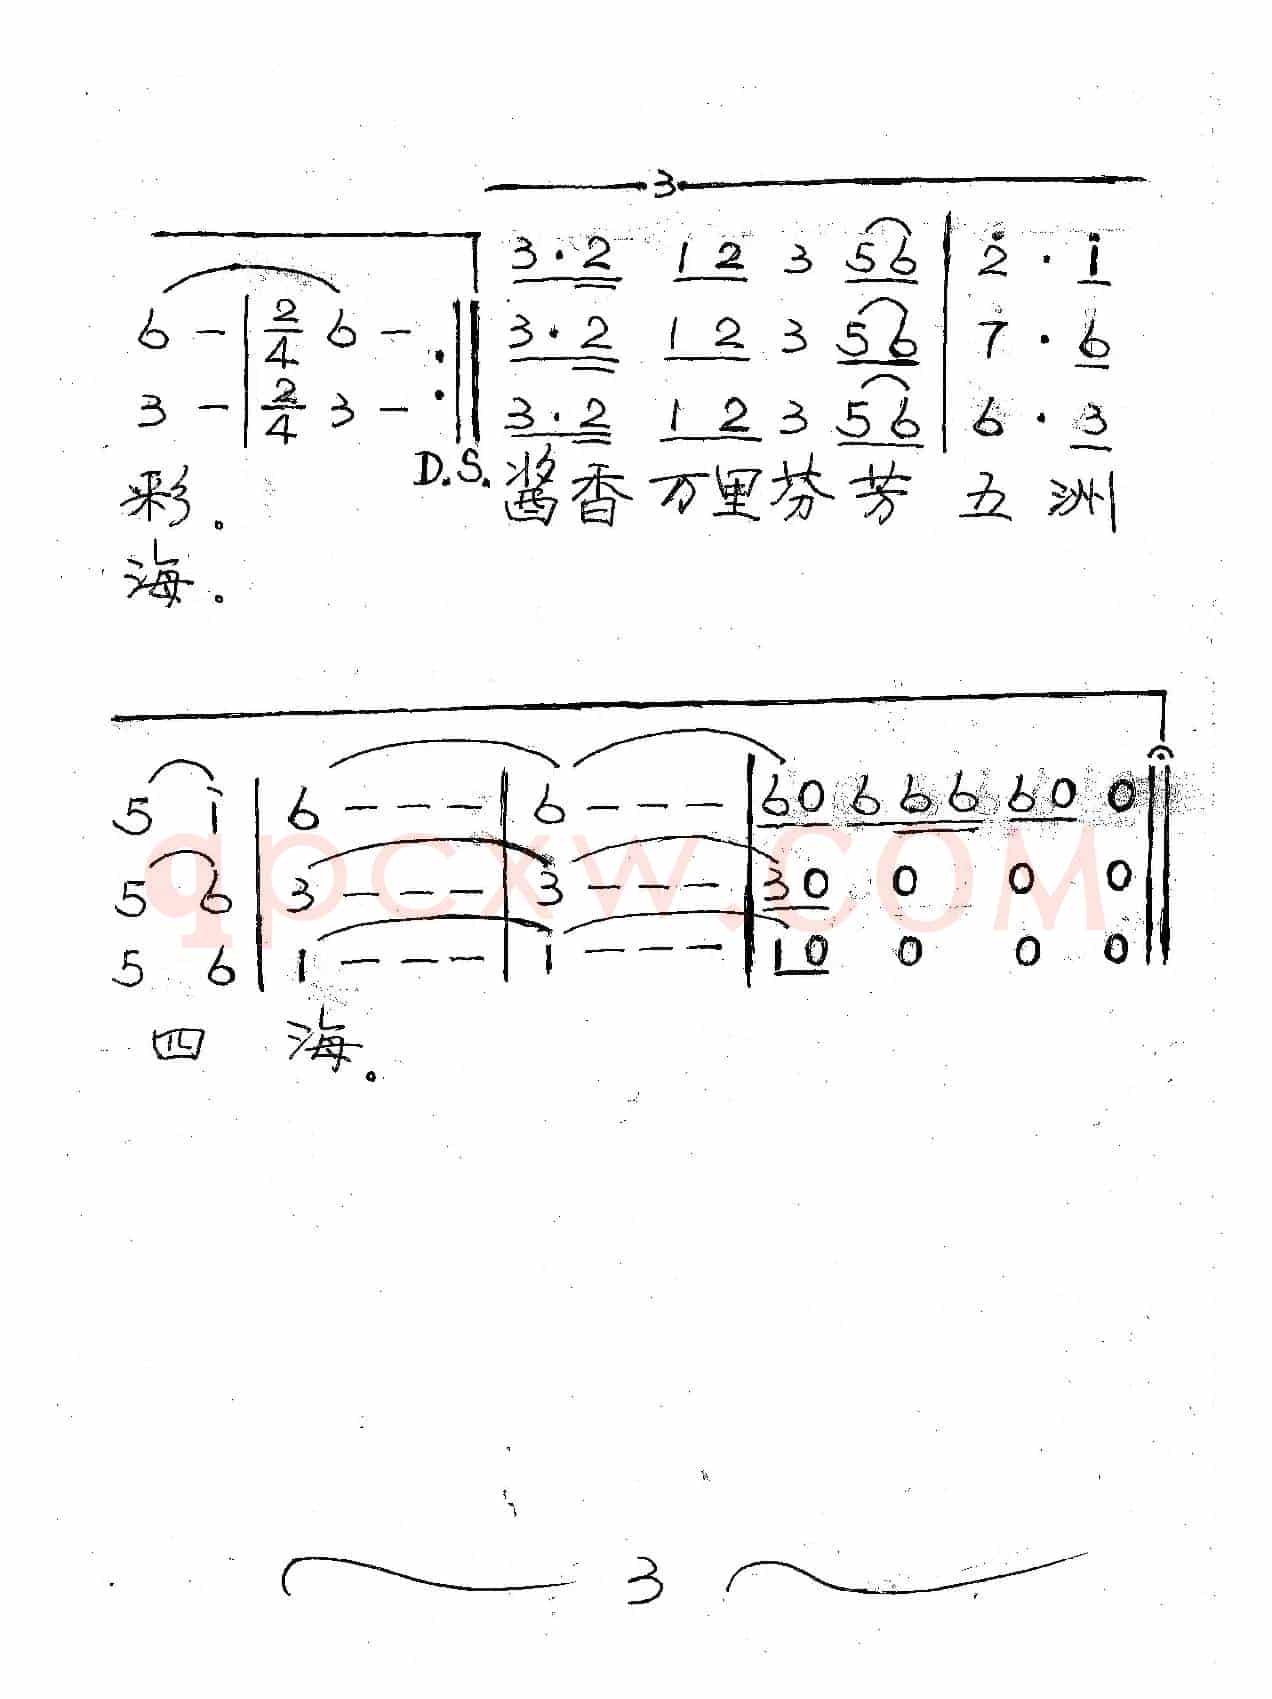 3
3·2 12 3 56 | 2̇ · 1̇
6 - | 2/4 6 - :‖ 3·2 12 3 56 | 7 · 6
3 - | 2/4 3 - :‖ 3·2 12 3 56 | 6 · 3
彩。 D.S. 酱香 万里芬芳 五洲
海。
5 1̇ | 6 - - - | 6 - - - | 60 666 60 0 ‖
5 6 | 3 - - - | 3 - - - | 30 0 0 0 ‖
5 6 | 1 - - - | 1 - - - | 10 0 0 0 ‖
qpcxw.COM
四 海。
3